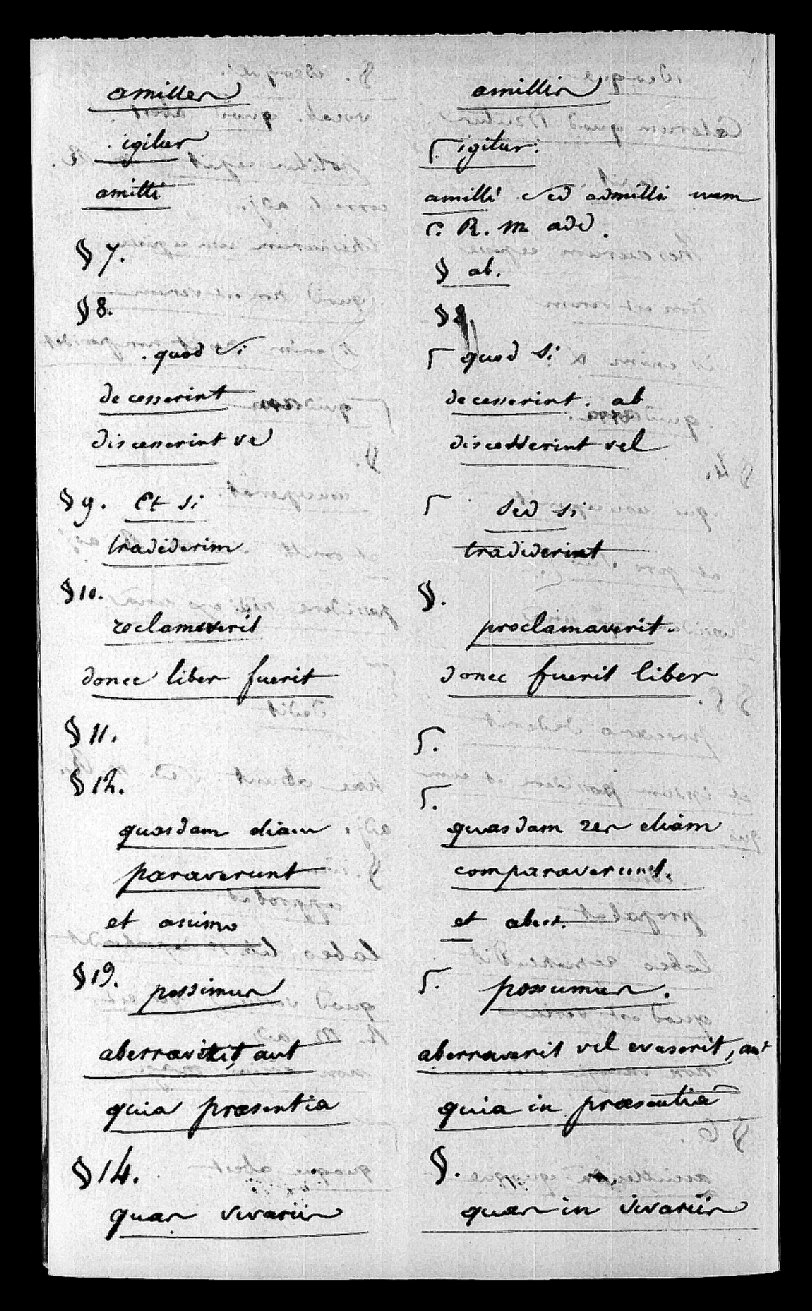 amitter amittis
. igitur ſ. igitur.
amitti amitti sed admitti eum
C. R. M add.
§ 7. § ab.
§ 8. § 8
. quod si ſ quod si
decesserint decesserint. ab
discesserint ve discesserint vel
§ 9. Et si ſ Sed si
tradiderim tradiderint
§ 10. §.
reclamaverit proclamaverit.
donec liber fuerit donec fuerit liber
§ 11. ſ.
§ 12. ſ.
quasdam etiam quasdam res etiam
paraverunt comparaverunt.
et animo et abest.
§ 13. possimus ſ. possumus.
aberraverit, aut aberraverit vel evaserit, aut
quia præsentia quia in præsentia
§ 14. §.
quas vivariis quas in vivariis